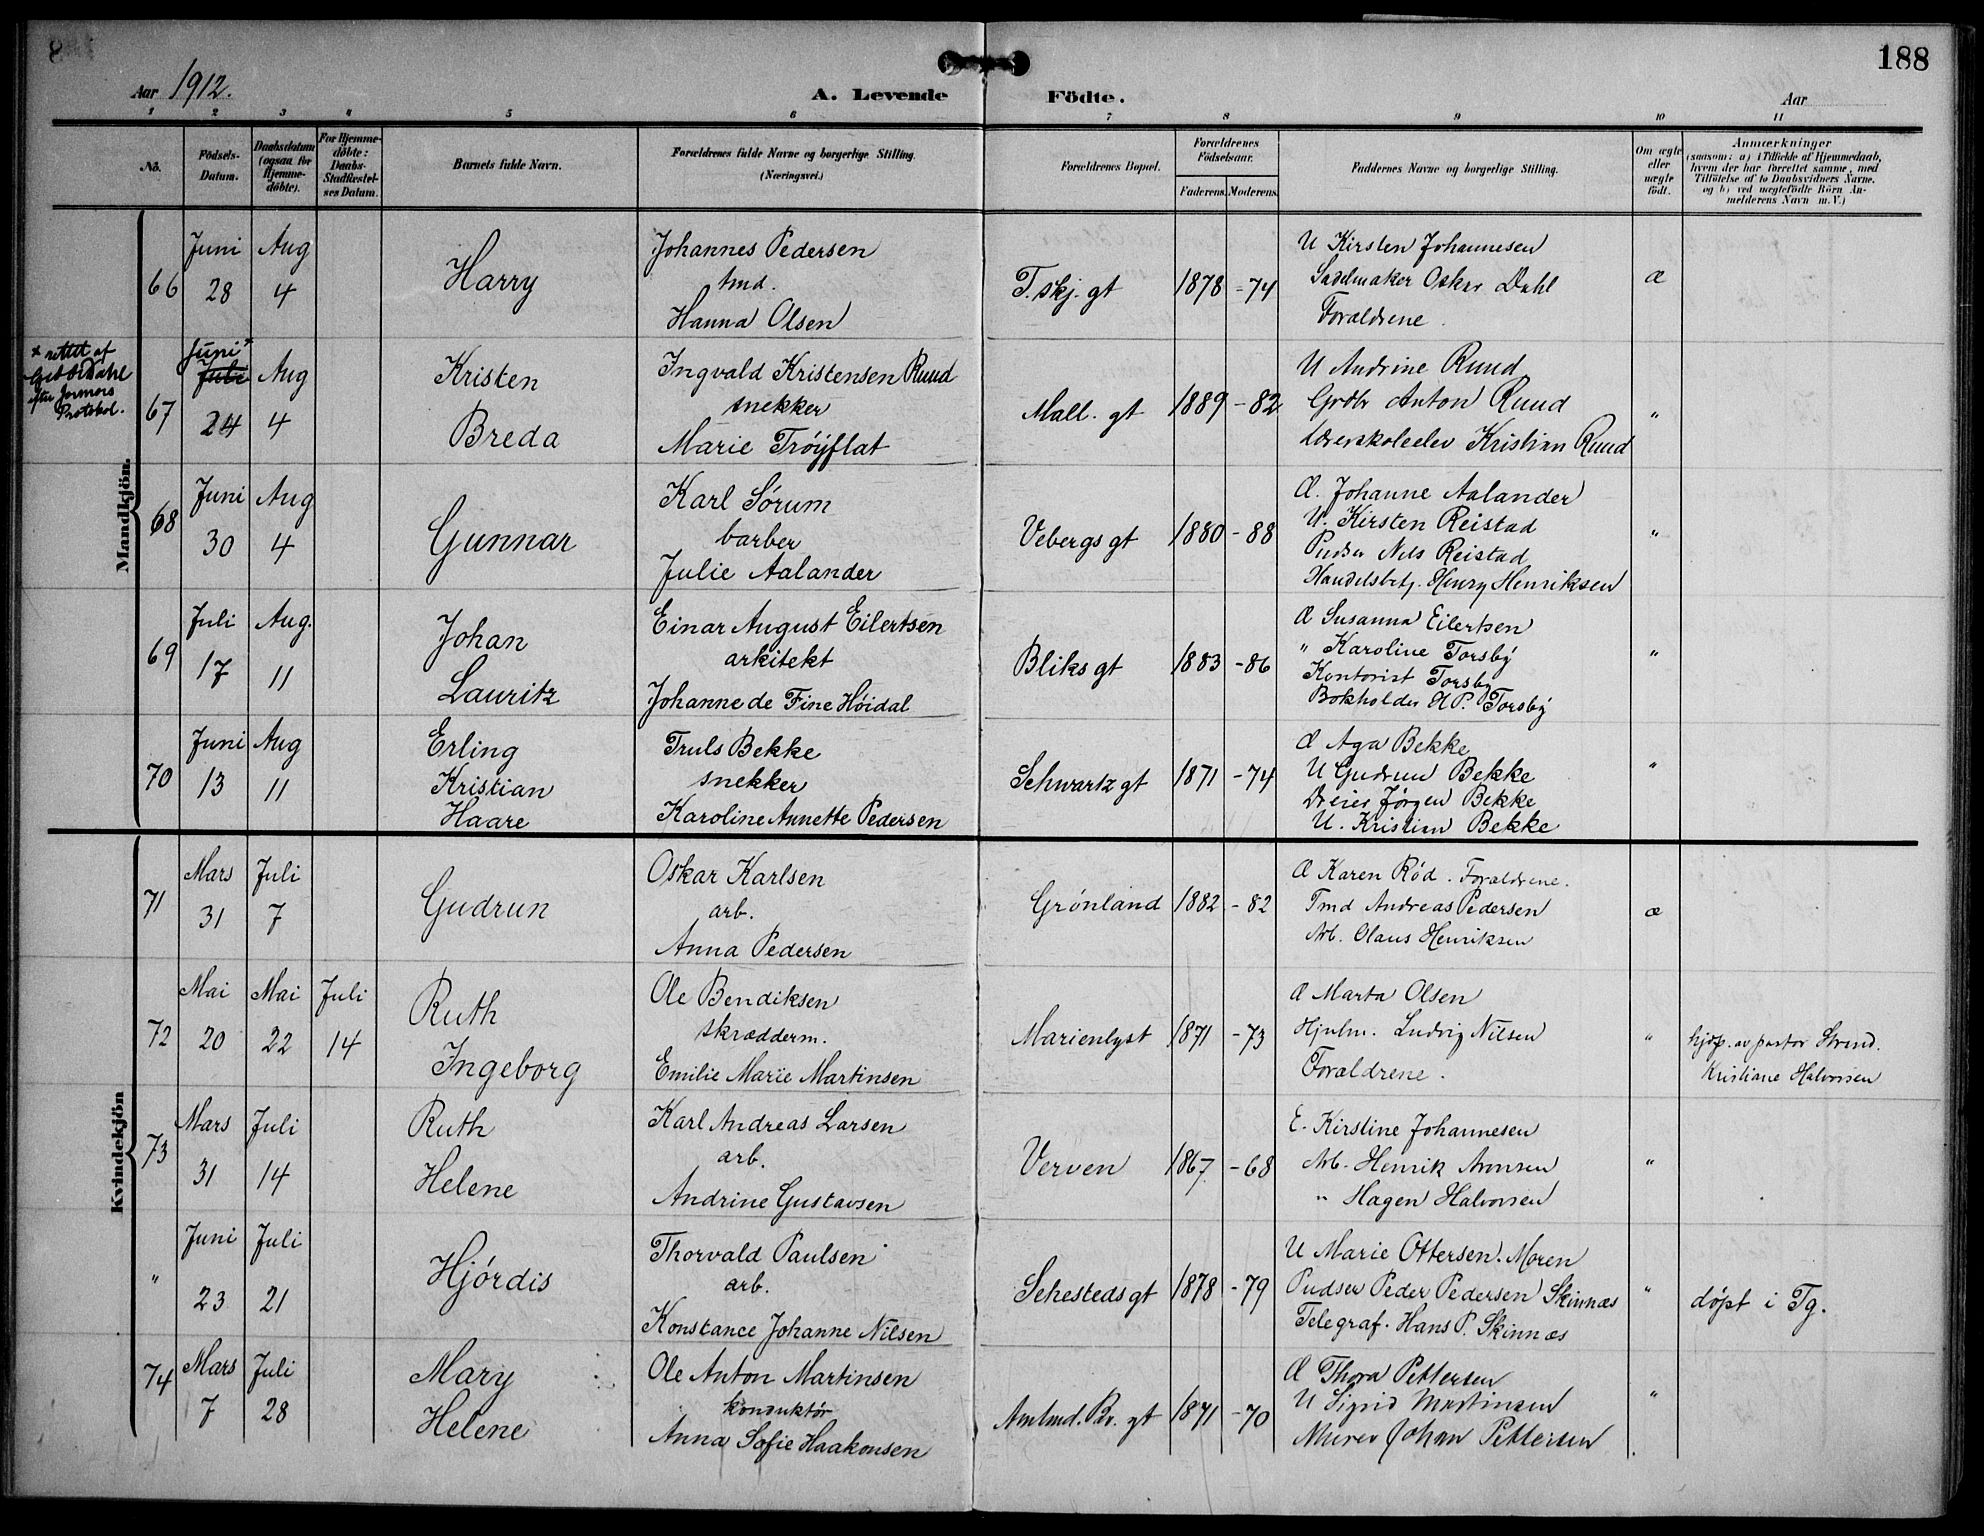 188
Aar 1912.
A. Levende Födte.
Aar
1 2 3 4 5 6 7 8 9 10 11
No.
Födsels-Datum.
Daabsdatum (ogsaa for Hjemme-döbte).
For Hjemme-döbte: Daabs-Stadfæstel-ses Datum.
Barnets fulde Navn.
Forældrenes fulde Navne og borgerlige Stilling. (Næringsvei.)
Forældrenes Bopæl.
Forældrenes Födselsaar.
Faderens. Moderens.
Faddernes Navne og borgerlige Stilling.
Om ægte eller uægte födt.
Anmærkninger
(saasom: a) i Tilfælde af Hjemmedaab, hvem der har forrettet samme, med Tilföielse af to Daabsvidners Navne, og b) ved uægtefödte Börn An-melderens Navn m. V.)
Mandkjön.
66 Juni 28 Aug 4 Harry
Johannes Pedersen
tmd.
Hanna Olsen
T.skj. gt 1878 -74
U Kirsten Johannesen
Sadelmaker Oskar Dahl
Foraldrene
æ
x rettet af
efter Jormors
Protokol.
67 Juni x Juli 24 Aug 4 Kristen Breda
Ingvald Kristensen Ruud
snekker
Marie Tröyflat
Mall. gt 1889 -82
U Andrine Ruud
Grdbr Anton Ruud
Lærerskoleelev Kristian Ruud
"
68 Juni 30 Aug 4 Gunnar
Karl Sörum
barber
Julie Aalander
Vebergs gt 1880 -88
Æ. Johanne Aalander
U. Kirsten Reistad
Pudser Nils Reistad
Handelsbetj. Henry Henriksen
"
69 Juli 17 Aug. 11 Johan Lauritz
Einar August Eilertsen
arkitekt
Johanne de Fine Höidal
Bliks gt 1883 -86
Æ Susanna Eilertsen
" Karoline Torsby
Kontorist Torsby
Bokholder H P. Torsby
"
70 Juni 13 Aug 11 Erling Kristian Haare
Truls Bekke
snekker
Karoline Annette Pedersen
Schwartz gt 1871 -74
Æ Aga Bekke
U Gudrun Bekke
Dreier Jörgen Bekke
U. Kristian Bekke
"
Kvindekjön
71 Mars 31 Juli 7 Gudrun
Oskar Karlsen
arb.
Anna Pedersen
Grönland 1882 -82
Æ Karen Röd. Foraldrene.
Tmd Andreas Pedersen
Arb. Olaus Henriksen
æ
72 Mai 20 Mai 22 Juli 14 Ruth Ingeborg
Ole Bendiksen
skrædderm.
Emilie Marie Martinsen
Marienlyst 1871 -73
Æ Marta Olsen
Hjulm. Ludvig Nilsen
Foraldrene.
"
hjdp. av pastor Strand.
Kristiane Halvorsen
73 Mars 31 Juli 14 Ruth Helene
Karl Andreas Larsen
arb.
Andrine Gustavsen
Verven 1867 -68
E. Kirstine Johannesen
Arb. Henrik Aronsen
" Hagen Halvorsen
"
" Juni 23 Juli 21 Hjördis
Thorvald Paulsen
arb.
Konstance Johanne Nilsen
Sehesteds gt 1878 -79
U Marie Ottersen. Moren
Pudser Peder Pedersen Skinnæs
Telegraf. Hans P. Skinnæs
"
döpt i Tg.
74 Mars 7 Juli 28 Mary Helene
Ole Anton Martinsen
konduktör
Anna Sofie Haakonsen
Amtmd. Bl. gt 1871 -70
Æ Thora Pettersen
U Sigrid Martinsen
Murer Johan Pettersen
"